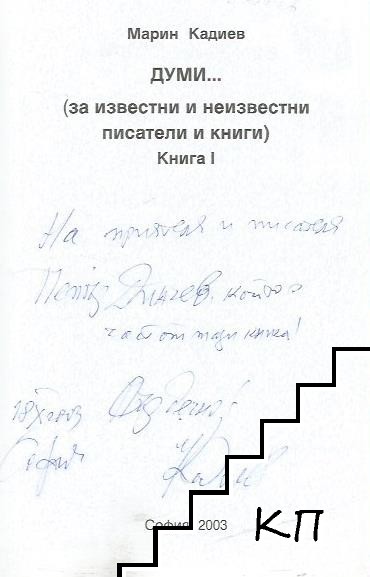 Марин Кадиев
ДУМИ...
(за известни и неизвестни
писатели и книги)
Книга I
На приятеля и писателя
Петър Динчев, който е
част от тази книга!
Сърдечно!
18.X.2003
София
Кадиев
София, 2003
КП